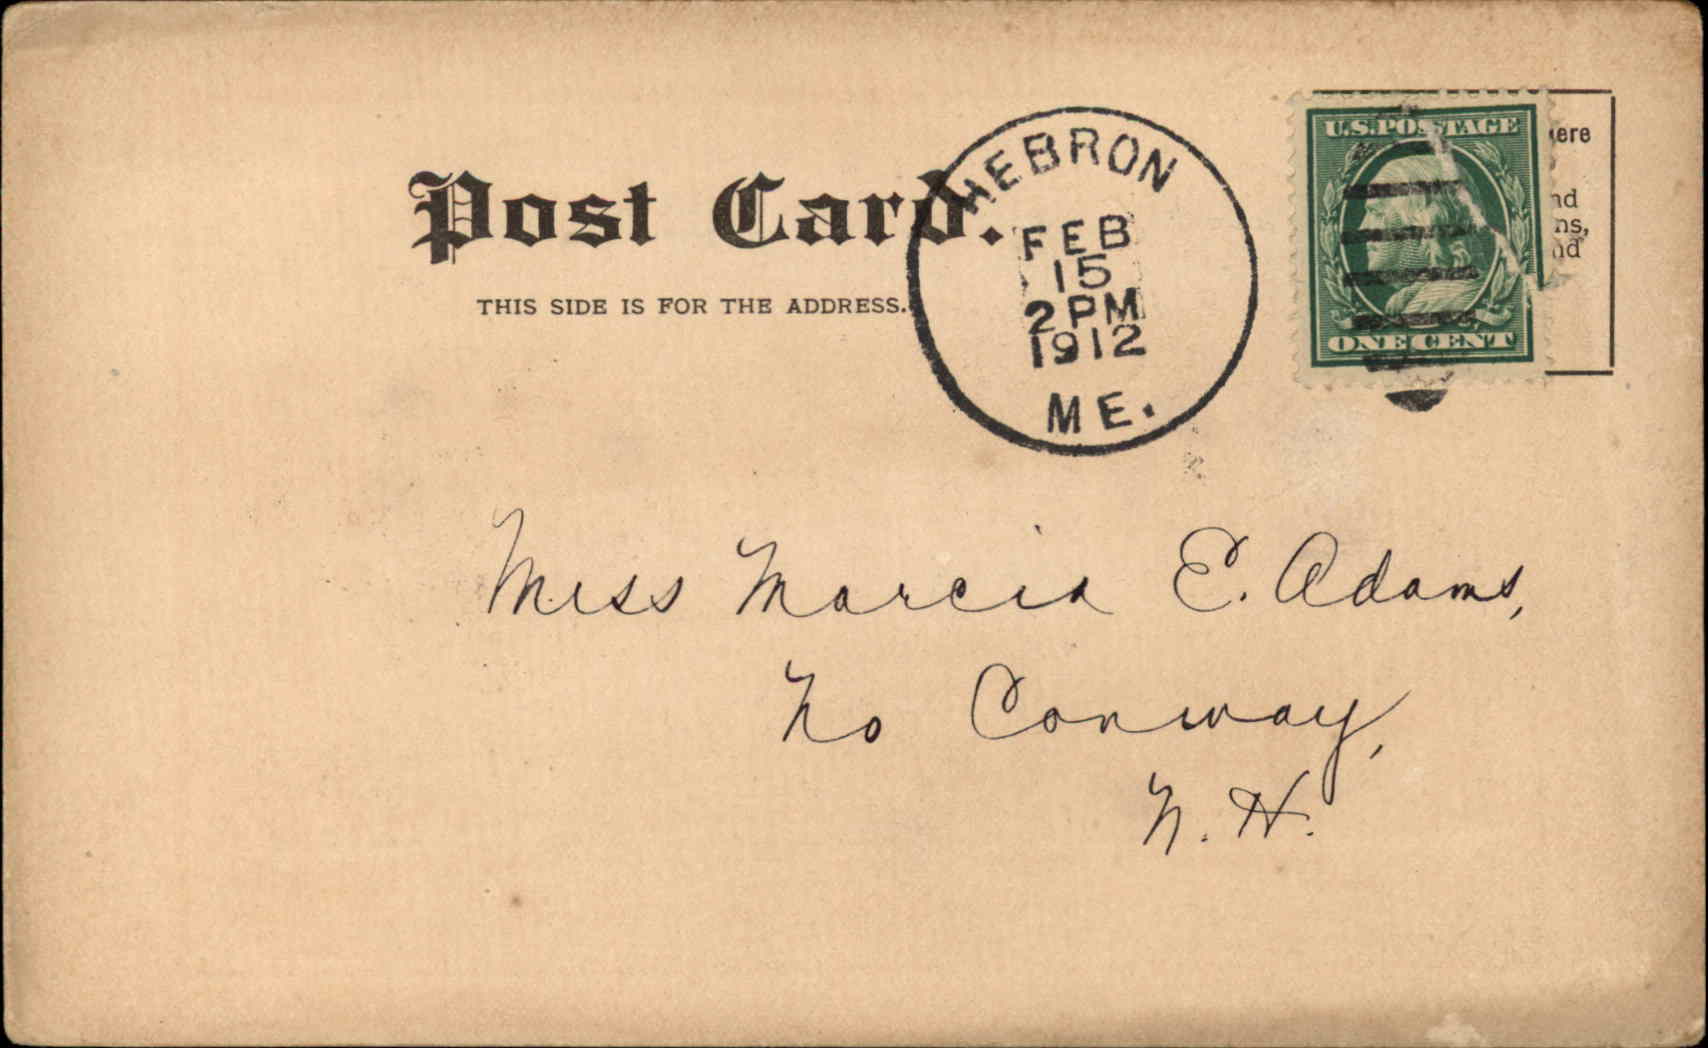 Post Card.
THIS SIDE IS FOR THE ADDRESS.
HEBRON
FEB
15
2 PM
1912
ME.
U.S. POSTAGE
ONE CENT
Miss Marcia E. Adams,
No Conway,
N. H.